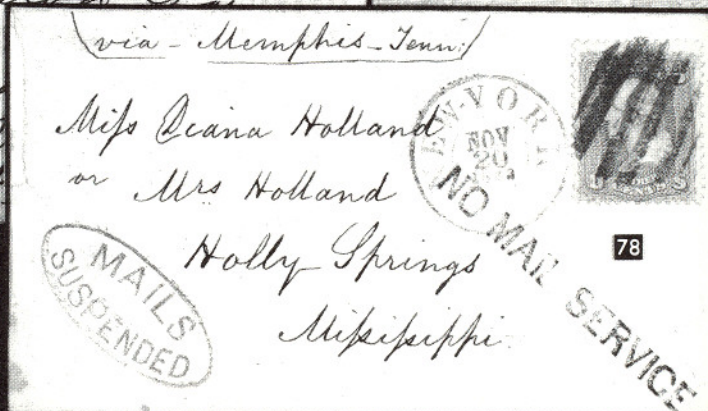 via - Memphis - Tenn:
Miss Diana Holland
or Mrs Holland
Holly Springs
Mississippi
NEW-YORK
NOV
20
NO MAIL SERVICE
MAILS
SUSPENDED
78